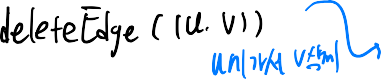 deleteEdge ((u. v))
u에 가서 v삭제